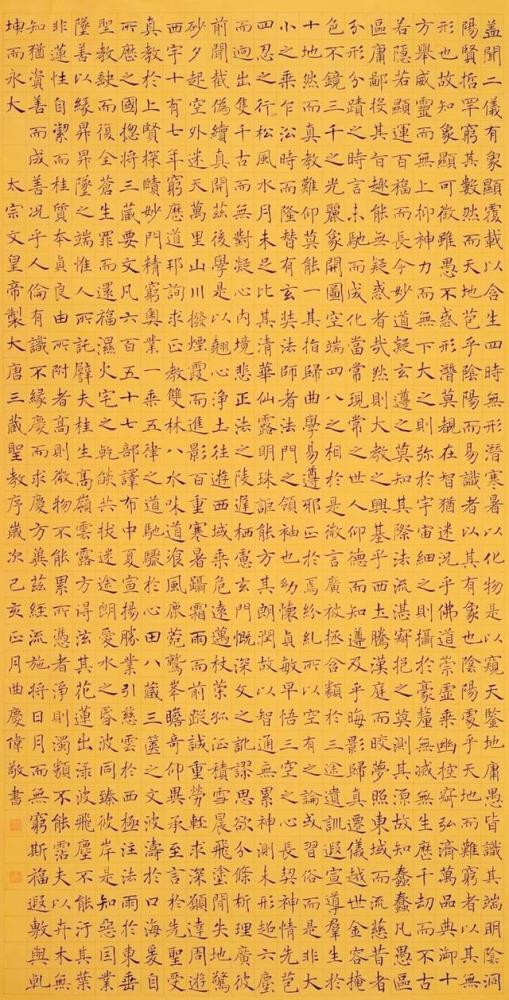 蓋聞二儀有象顯覆載以含生四時無形潛寒暑以化物是以窺天鑒地庸愚皆識其端明陰洞
陽賢哲罕窮其數然而天地苞乎陰陽而易識者以其有象也陰陽處乎天地而難窮者以其無
形也故知象顯可徵雖愚不惑形潛莫覩在智猶迷況乎佛道崇虛乘幽控寂弘濟萬品典御十
方舉威靈而無上抑神力而無下大之則彌於宇宙細之則攝於豪釐無滅無生歷千劫而不古
若隱若顯運百福而長今妙道凝玄遵之莫知其際法流湛寂挹之莫測其源故知蠢蠢凡愚區
區庸鄙投其旨趣能無疑惑者哉然則大教之興基乎西土騰漢庭而皎夢照東域而流慈昔者
分形分蹟之時言未馳而成化當常現常之世人仰德而知遵及乎晦影歸真遷儀越世金容掩
色不鏡三千之光麗象開圖空端四八之相於是微言廣被拯含類於三途遺訓遐宣導羣生於
十地然而真教難仰莫能一其指歸曲學易遵邪正於焉紛糺所以空有之論或習俗而是非大
小之乘乍沿時而隆替有玄奘法師者法門之領袖也幼懷貞敏早悟三空之心長契神情先苞
四忍之行松風水月未足比其清華仙露明珠詎能方其朗潤故以智通無累神測未形超六塵
而迥出隻千古而無對凝心內境悲正法之陵遲栖慮玄門慨深文之訛謬思欲分條析理廣彼
前聞截偽續真開茲後學是以翹心淨土往遊西域乘危遠邁杖策孤征積雪晨飛塗閒失地驚
砂夕起空外迷天萬里山川撥煙霞而進影百重寒暑躡霜雨而前蹤誠重勞輕求深願達周遊
西宇十有七年窮歷道邦詢求正教雙林八水味道飡風鹿菀鷲峯瞻奇仰異承至言於先聖受
真教於上賢探賾妙門精窮奧業一乘五律之道馳驟於心田八藏三篋之文波濤於口海爰自
所歷之國惣將三藏要文凡六百五十七部譯布中夏宣揚勝業引慈雲於西極注法雨於東垂
聖教缺而復全蒼生罪而還福濕火宅之乾燄共拔迷途朗愛水之昏波同臻彼岸是知惡因業
墜善以緣昇昇墜之端惟人所託譬夫桂生高嶺雲露方得泫其花蓮出淥波飛塵不能汙其葉
非蓮性自潔而桂質本貞良由所附者高則微物不能累所憑者淨則濁類不能霑夫以卉木無
知猶資善而成善況乎人倫有識不緣慶而求慶方冀茲經流施將日月而無窮斯福遐敷與乹
坤而永大 太宗文皇帝製大唐三藏聖教序歲次己亥正月曲慶偉敬書